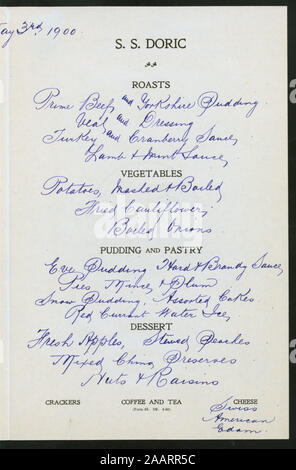 May 3rd, 1900
S. S. DORIC
ROASTS
Prime Beef and Yorkshire Pudding
Veal and Dressing
Turkey and Cranberry Sauce,
Lamb & Mint Sauce,
VEGETABLES
Potatoes, Mashed & Boiled,
Fried Cauliflower,
Boiled Onions.
PUDDING AND PASTRY
Eve Pudding Hard & Brandy Sauce,
Pies Mince, & Plum
Snow Pudding, Assorted Cakes
Red Currant Water Ice,
DESSERT
Fresh Apples, Stewed Peaches
Mixed China Preserves
Nuts & Raisins
CRACKERS COFFEE AND TEA CHEESE
Swiss
American
Edam.
alamy
Image ID: 2AARR5C
www.alamy.com